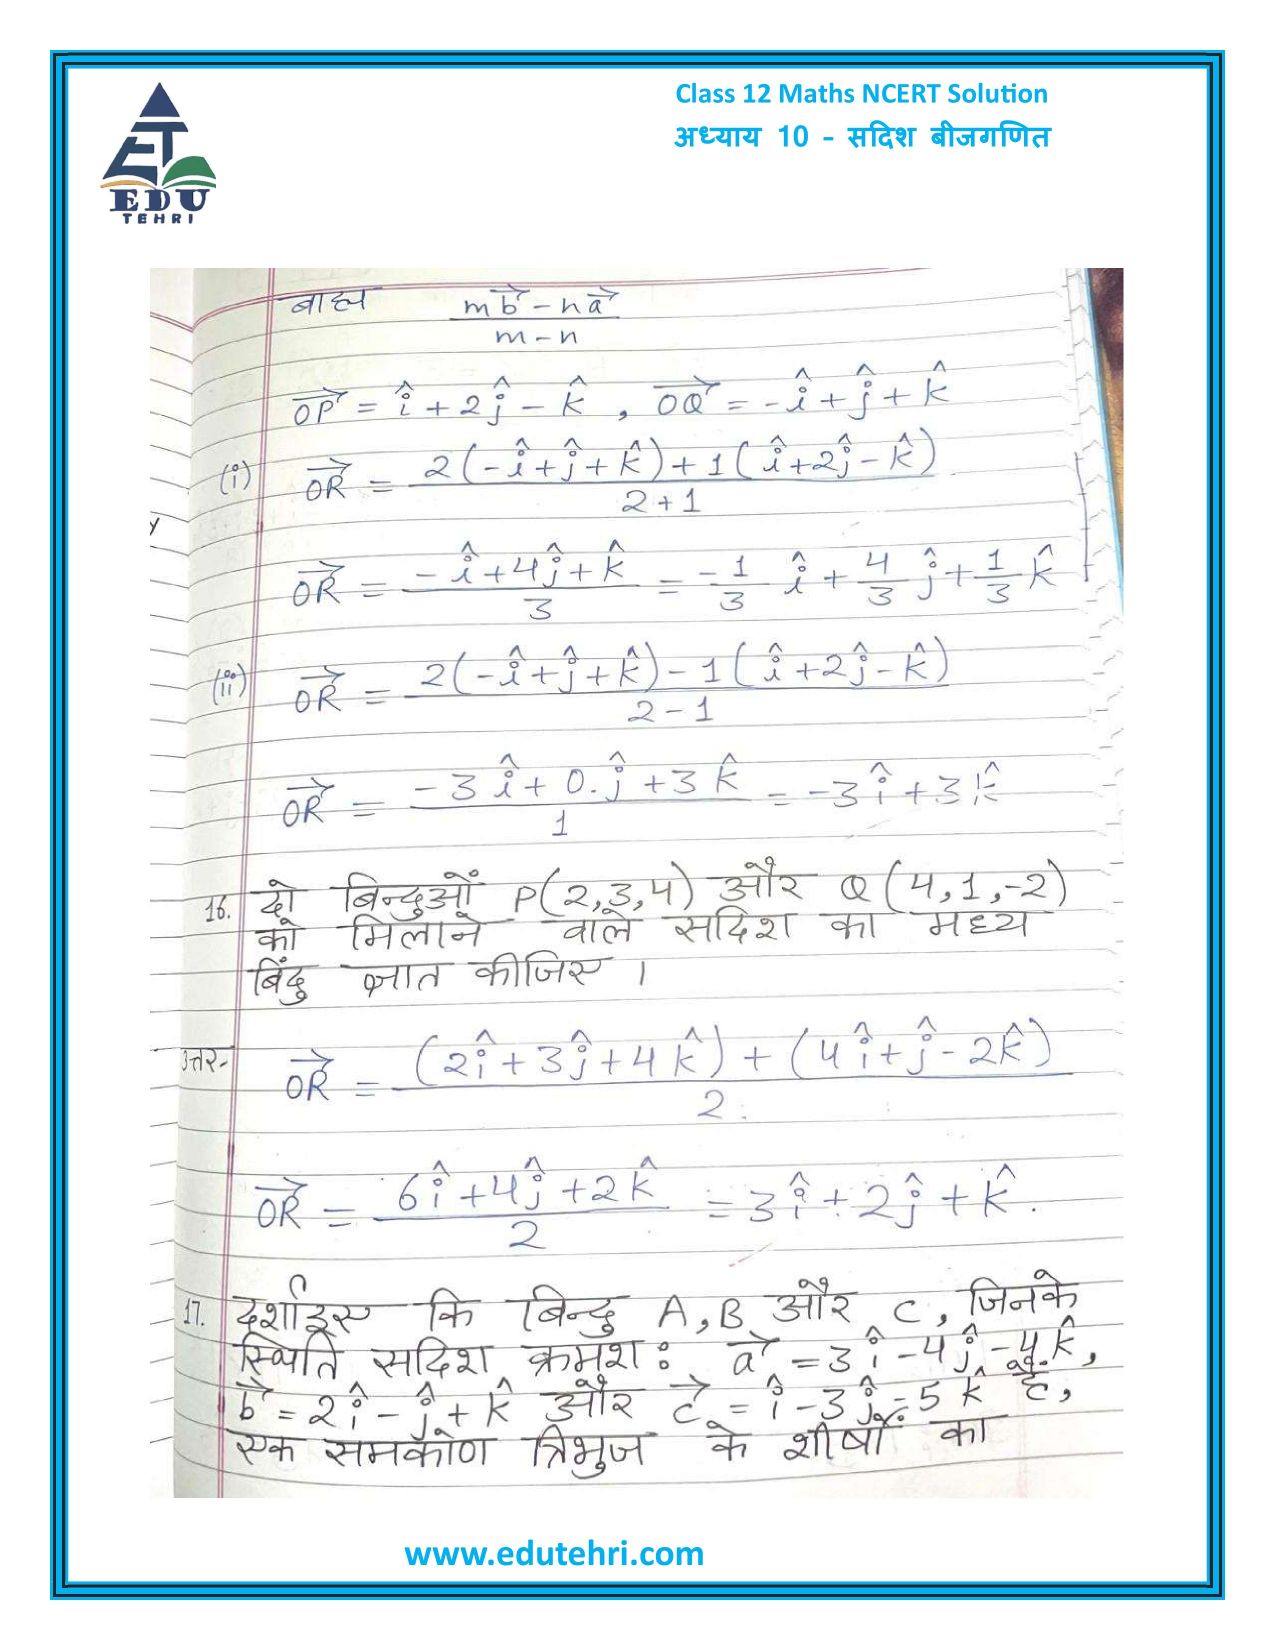 Class 12 Maths NCERT Solution
अध्याय 10 - सदिश बीजगणित
EDU
TEHRI
बाह्य (m\vec{b} - n\vec{a}) / (m - n)
\vec{OP} = î + 2ĵ - k̂ , \vec{OQ} = -î + ĵ + k̂
(i) \vec{OR} = (2(-î + ĵ + k̂) + 1(î + 2ĵ - k̂)) / (2 + 1)
\vec{OR} = (-î + 4ĵ + k̂) / 3 = -1/3 î + 4/3 ĵ + 1/3 k̂
(ii) \vec{OR} = (2(-î + ĵ + k̂) - 1(î + 2ĵ - k̂)) / (2 - 1)
\vec{OR} = (-3î + 0.ĵ + 3k̂) / 1 = -3î + 3k̂
16. दो बिन्दुओं P(2,3,4) और Q(4,1,-2)
को मिलाने वाले सदिश का मध्य
बिंदु ज्ञात कीजिस ।
उत्तर- \vec{OR} = ((2î + 3ĵ + 4k̂) + (4î + ĵ - 2k̂)) / 2
\vec{OR} = (6î + 4ĵ + 2k̂) / 2 = 3î + 2ĵ + k̂.
17. दर्शाइस कि बिन्दु A, B और C, जिनके
स्थिति सदिश क्रमश: \vec{a} = 3î - 4ĵ - 4k̂,
\vec{b} = 2î - ĵ + k̂ और \vec{c} = î - 3ĵ - 5k̂ हैं,
एक समकोण त्रिभुज के शीर्षों का
www.edutehri.com